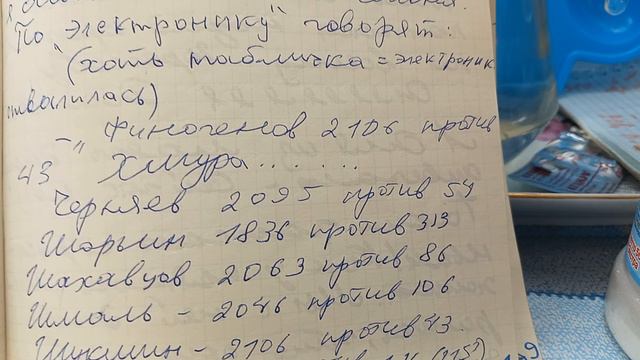 По электронику" говорят:
"(хоть табличка = электроник
твалилась)
– „ Финогенов 2106 против
43 Хмура.......
Черняев 2095 против 54
Шарьин 1836 против 313
Шахавцов 2063 против 86
Шмаль – 2046 против 106
2106 против 43.